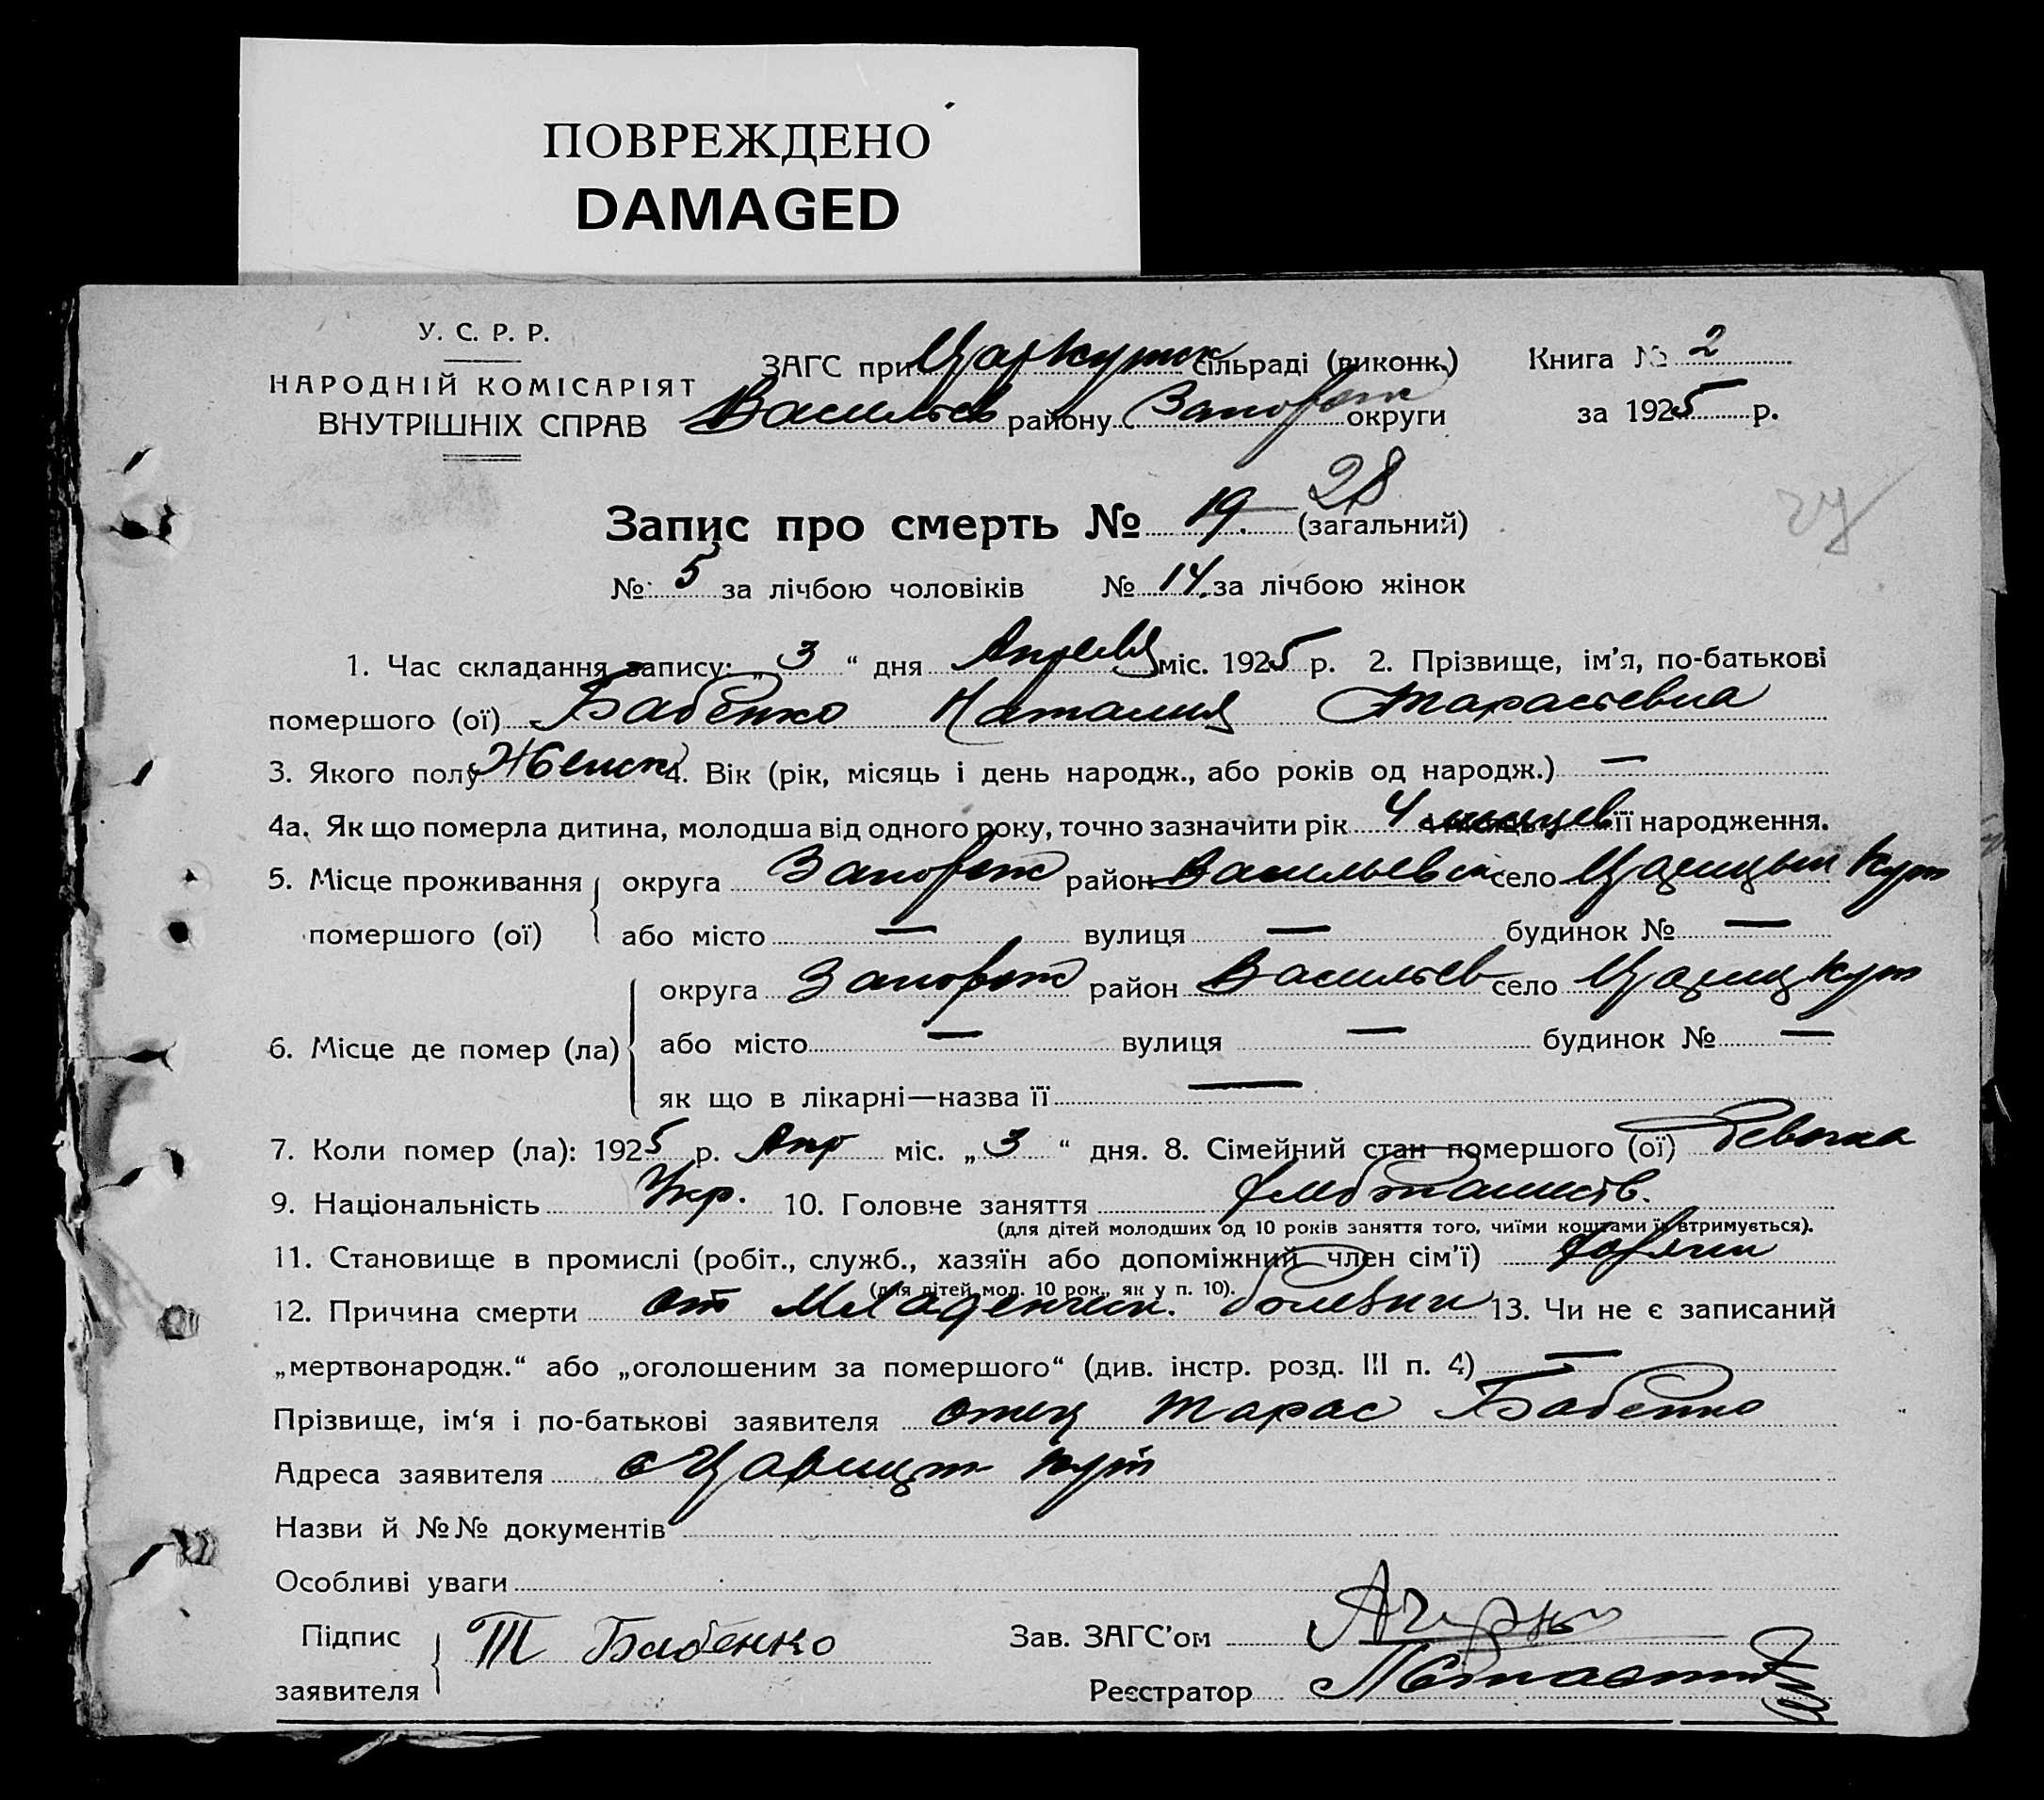 ПОВРЕЖДЕНО
DAMAGED
У. С. Р. Р.
НАРОДНІЙ КОМІСАРІЯТ
ВНУТРІШНІХ СПРАВ
ЗАГС при Царкутск сільраді (виконк.) Книга № 2
Васильев району Запорож округи за 1925 р.
28
Запис про смерть № 19. (загальний)
№ 5 за лічбою чоловіків № 14. за лічбою жінок
1. Час складання запису: „ 3 “ дня Апреля міс. 1925 р. 2. Прізвище, ім’я, по-батькові
помершого (ої) Бабенко Наталия Тарасьевна
3. Якого полу Женск 4. Вік (рік, місяць і день народж., або років од народж.) —
4а. Як що померла дитина, молодша від одного року, точно зазначити рік 4 месяцев її народження.
5. Місце проживання помершого (ої) округа Запорож район Васильевск село Царицын Кут
або місто — вулиця — будинок № —
6. Місце де помер (ла) округа Запорож район Васильев село Цариц Кут
або місто — вулиця — будинок № —
як що в лікарні—назва її —
7. Коли помер (ла): 1925 р. Апр міс. „ 3 “ дня. 8. Сімейний стан помершого (ої) Девочка
9. Національність Укр. 10. Головне заняття
(для дітей молодших од 10 років заняття того, чиїми коштами їх втримується).
11. Становище в промислі (робіт., служб., хазяїн або допоміжний член сім’ї)
(для дітей мол. 10 рок., як у п. 10).
12. Причина смерти от Младенческ. болезни 13. Чи не є записаний
„мертвонародж.“ або „оголошеним за помершого“ (див. інстр. розд. III п. 4) —
Прізвище, ім‘я і по-батькові заявителя отец Тарас Бабенко
Адреса заявителя с Царицын Кут
Назви й №№ документів
Особливі уваги
Підпис заявителя Т Бабенко Зав. ЗАГС’ом
Реєстратор